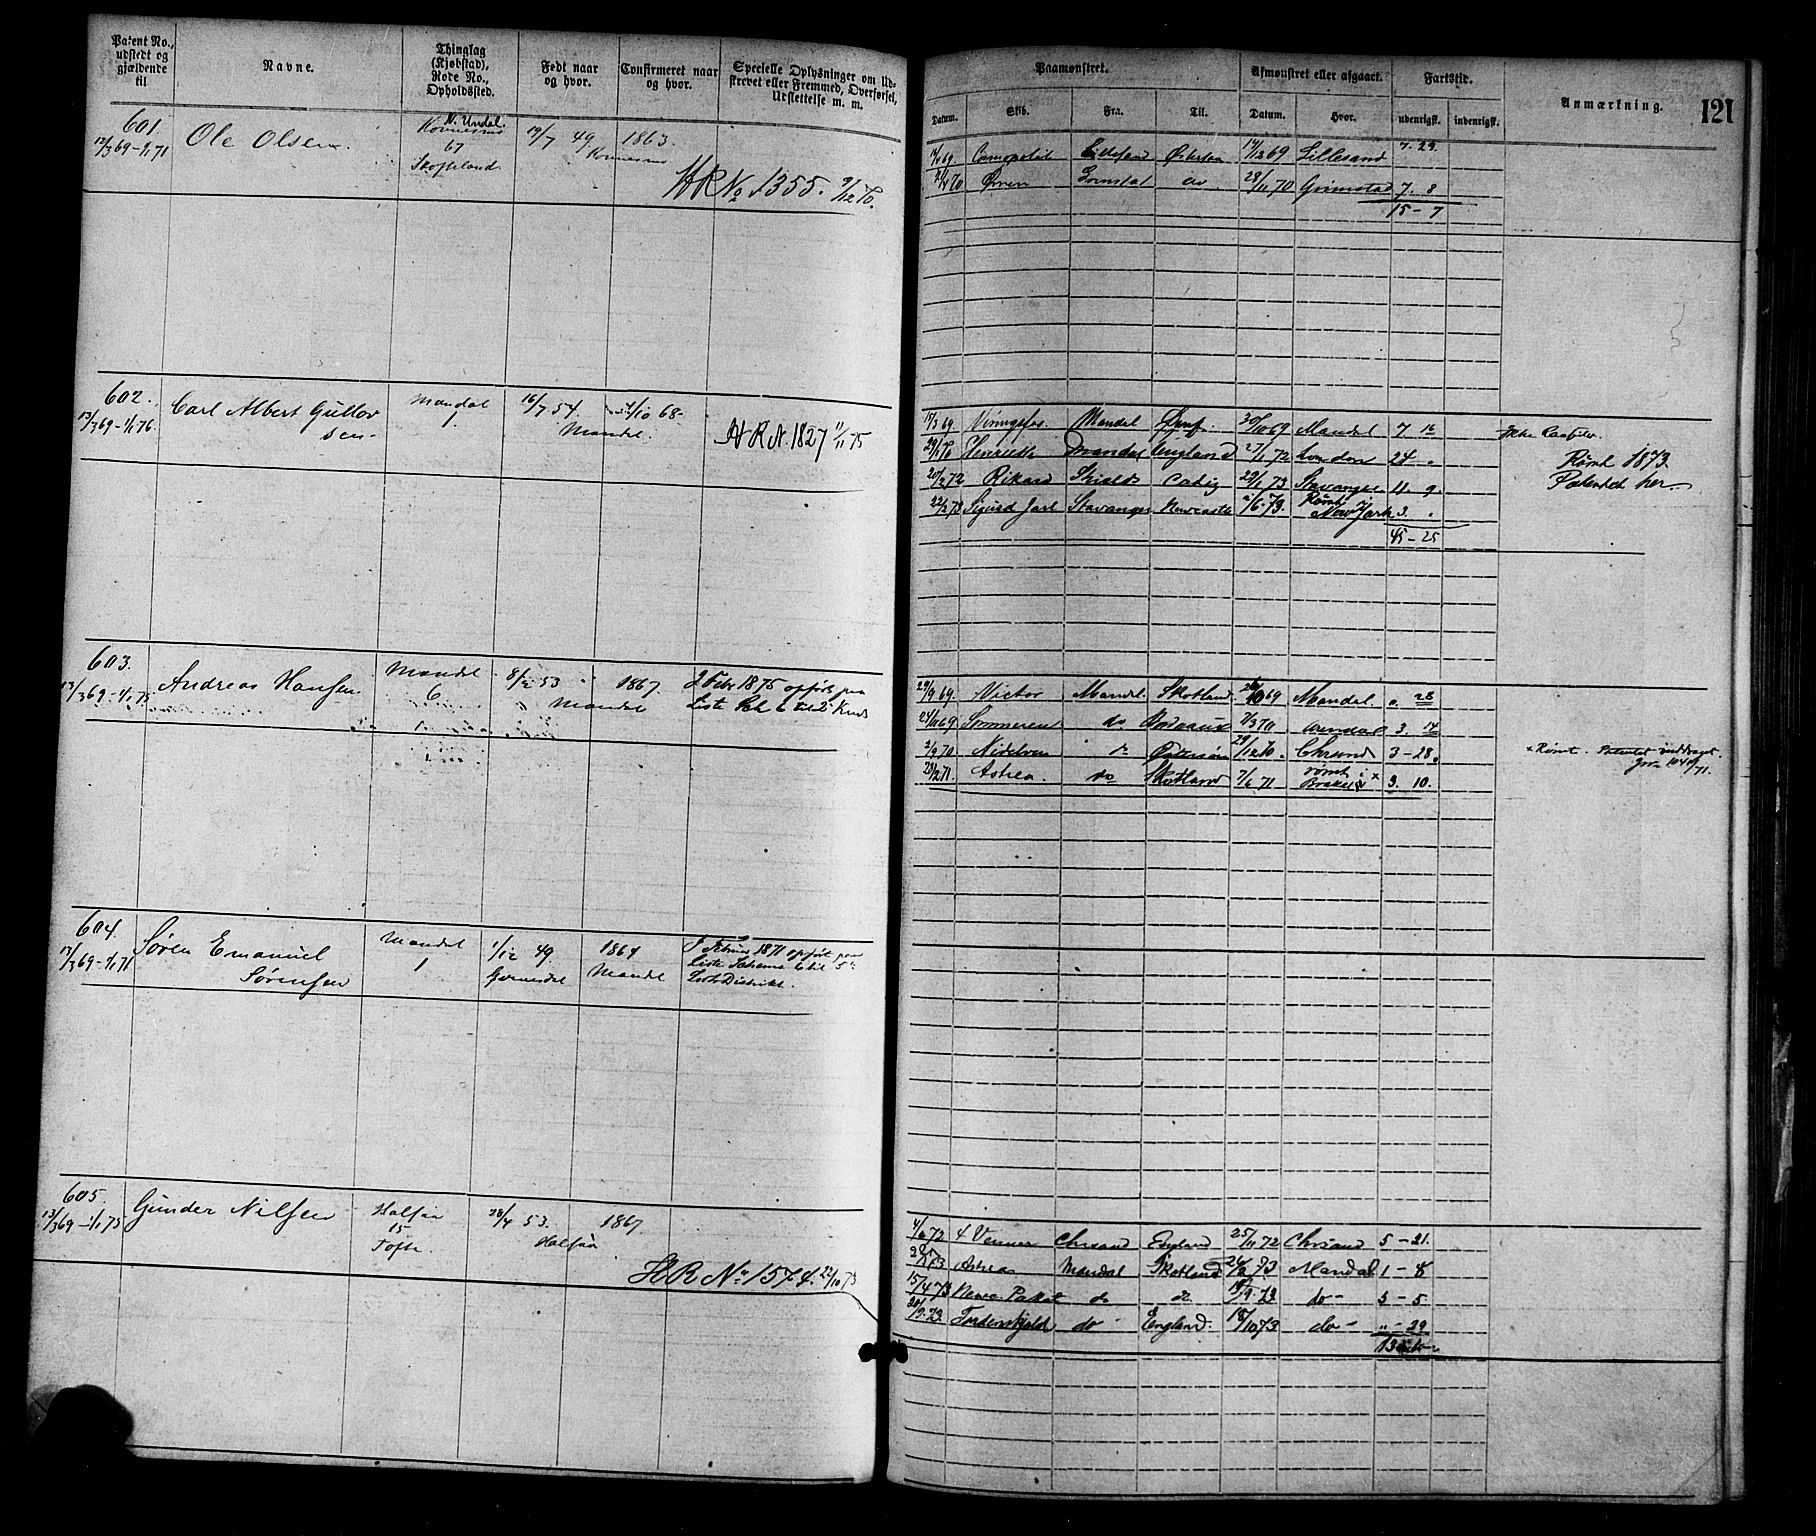 Patent No., udstedt og gjældende til
Navne.
Thinglag (Kjøbstad), Rode No., Opholdssted.
Født naar og hvor.
Confirmeret naar og hvor.
Specielle Oplysninger om Udskrevet eller Fremmed, Overførsel, Udslettelse m. m.
Paamønstret.
Afmønstret eller afgaaet.
Fartstid.
Anmærkning.
121
Datum.
Skib.
Fra.
Til.
Datum.
Hvor.
udenrigsk.
indenrigsk.
601.
13/3 69-1/1 71
Ole Olsen
N. Undal.
67
19/7 49
1863.
HR No 1355. 9/12 70.
Cosmopolit Lillesand Østersøen 14/12 69 Lillesand 7. 29.
21/4 70 Ørnen Grimstad do 28/11 70 Grimstad 7. 8
15-7
602.
13/3 69-1/1 76.
Carl Albert Gullov
sen
Mandal
1.
16/7 54.
1/10 68.
Mandal.
HR N. 1827 11/1 75
17/3 69. Mandal 30/10 69 Mandal 7. 16
Henriette Mandal England 27/1 72 London 24 "
Rømt 1873.
20/2 72 Rikard Shields Cadiz 29/1 73 Stavanger 11. 9.
Patentet her
22/2 73 Sigurd Jarl Stavanger Newcastle /6 73 Rømt New Jork 3. "
45-25
603.
13/3 69-1/1 75
Andreas Hansen
Mandal
6
8/2 53
Mandal
1867.
2 Febr 1875 opført paa
Liste 6 til 2
29/9 69. Victor Mandal. Skotland 26/10 69 Mandal. 0. 28
24/11 69 do Bordeaux 7/3 70 Arendal 3. 14
2/9 70 Nidelven do Østersøen 29/12 70. Chrsund 3-28.
× Rømt. Patentet inddraget
23/2 71. Astrea. do Skotland 7/6 71 rømt i × 3. 10.
604.
13/3 69-1/1 71
Søren Emanuel
Sørensen
Mandal
1
1/12 49.
1864
Mandal
Februar 1871 opført paa
Liste Schema 6 til 5te
Distrikt.
605.
13/3 69-1/1 75
Gunder Nilsen
Halsaa
15
Tofte.
28/4 53.
Halsaa
1867.
HR No 1574. 29/10 73
4/6 72 4 Venner Chrsand England 25/11 72 Chrsand 5-21.
Astrea Mandal Skotland 24/3 73 Mandal 1-8
15/4 73 Newc. Paket do do 19/9 73 do- 5-5
20/9 73. Tordenskjold do England. 18/10 73 do- "-29